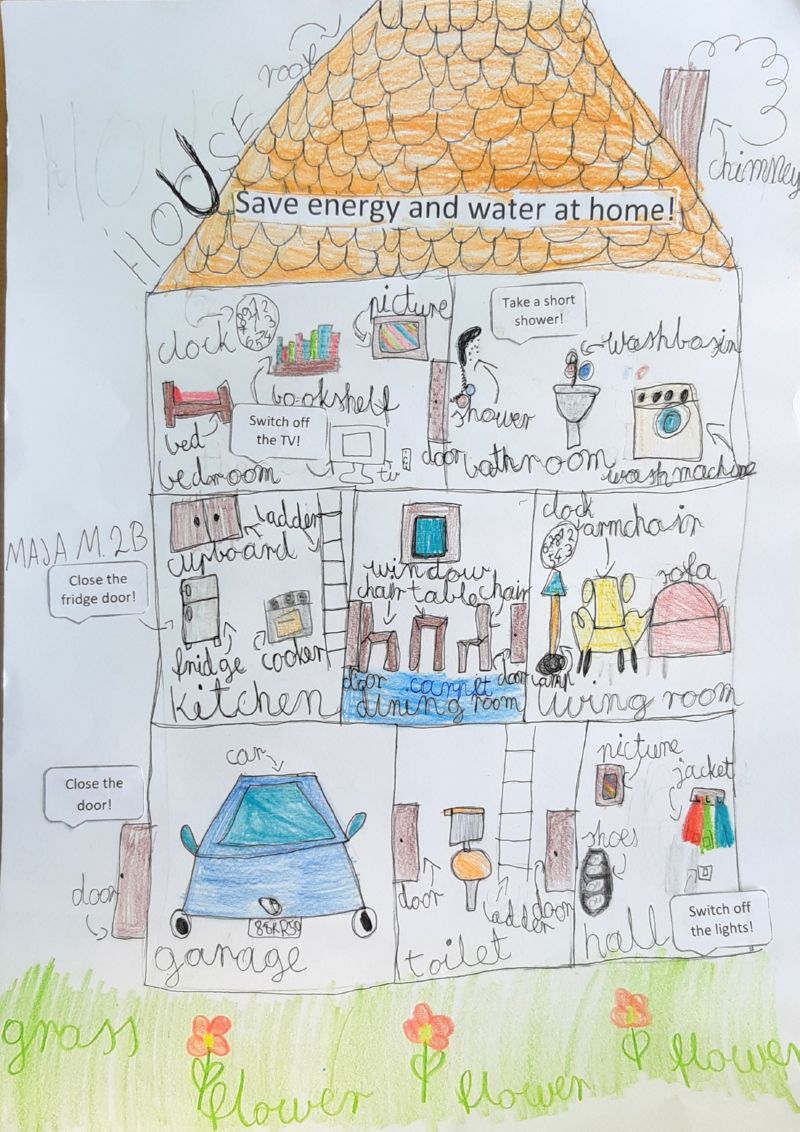 roof
HOUSE
HOUSE
chimney
Save energy and water at home!
clock
picture
bookshelf
bed
Switch off
the TV!
tv
bedroom
Take a short
shower!
washbasin
shower
door
bathroom
washmachine
MAJA M. 2B
Close the
fridge door!
cupboard
ladder
fridge
cooker
kitchen
window
chair
table
chair
door
carpet
door
dining room
clock
armchair
sofa
lamp
living room
Close the
door!
door
car
garage
door
ladder
door
toilet
picture
jacket
shoes
Switch off
the lights!
hall
grass
flower
flower
flower